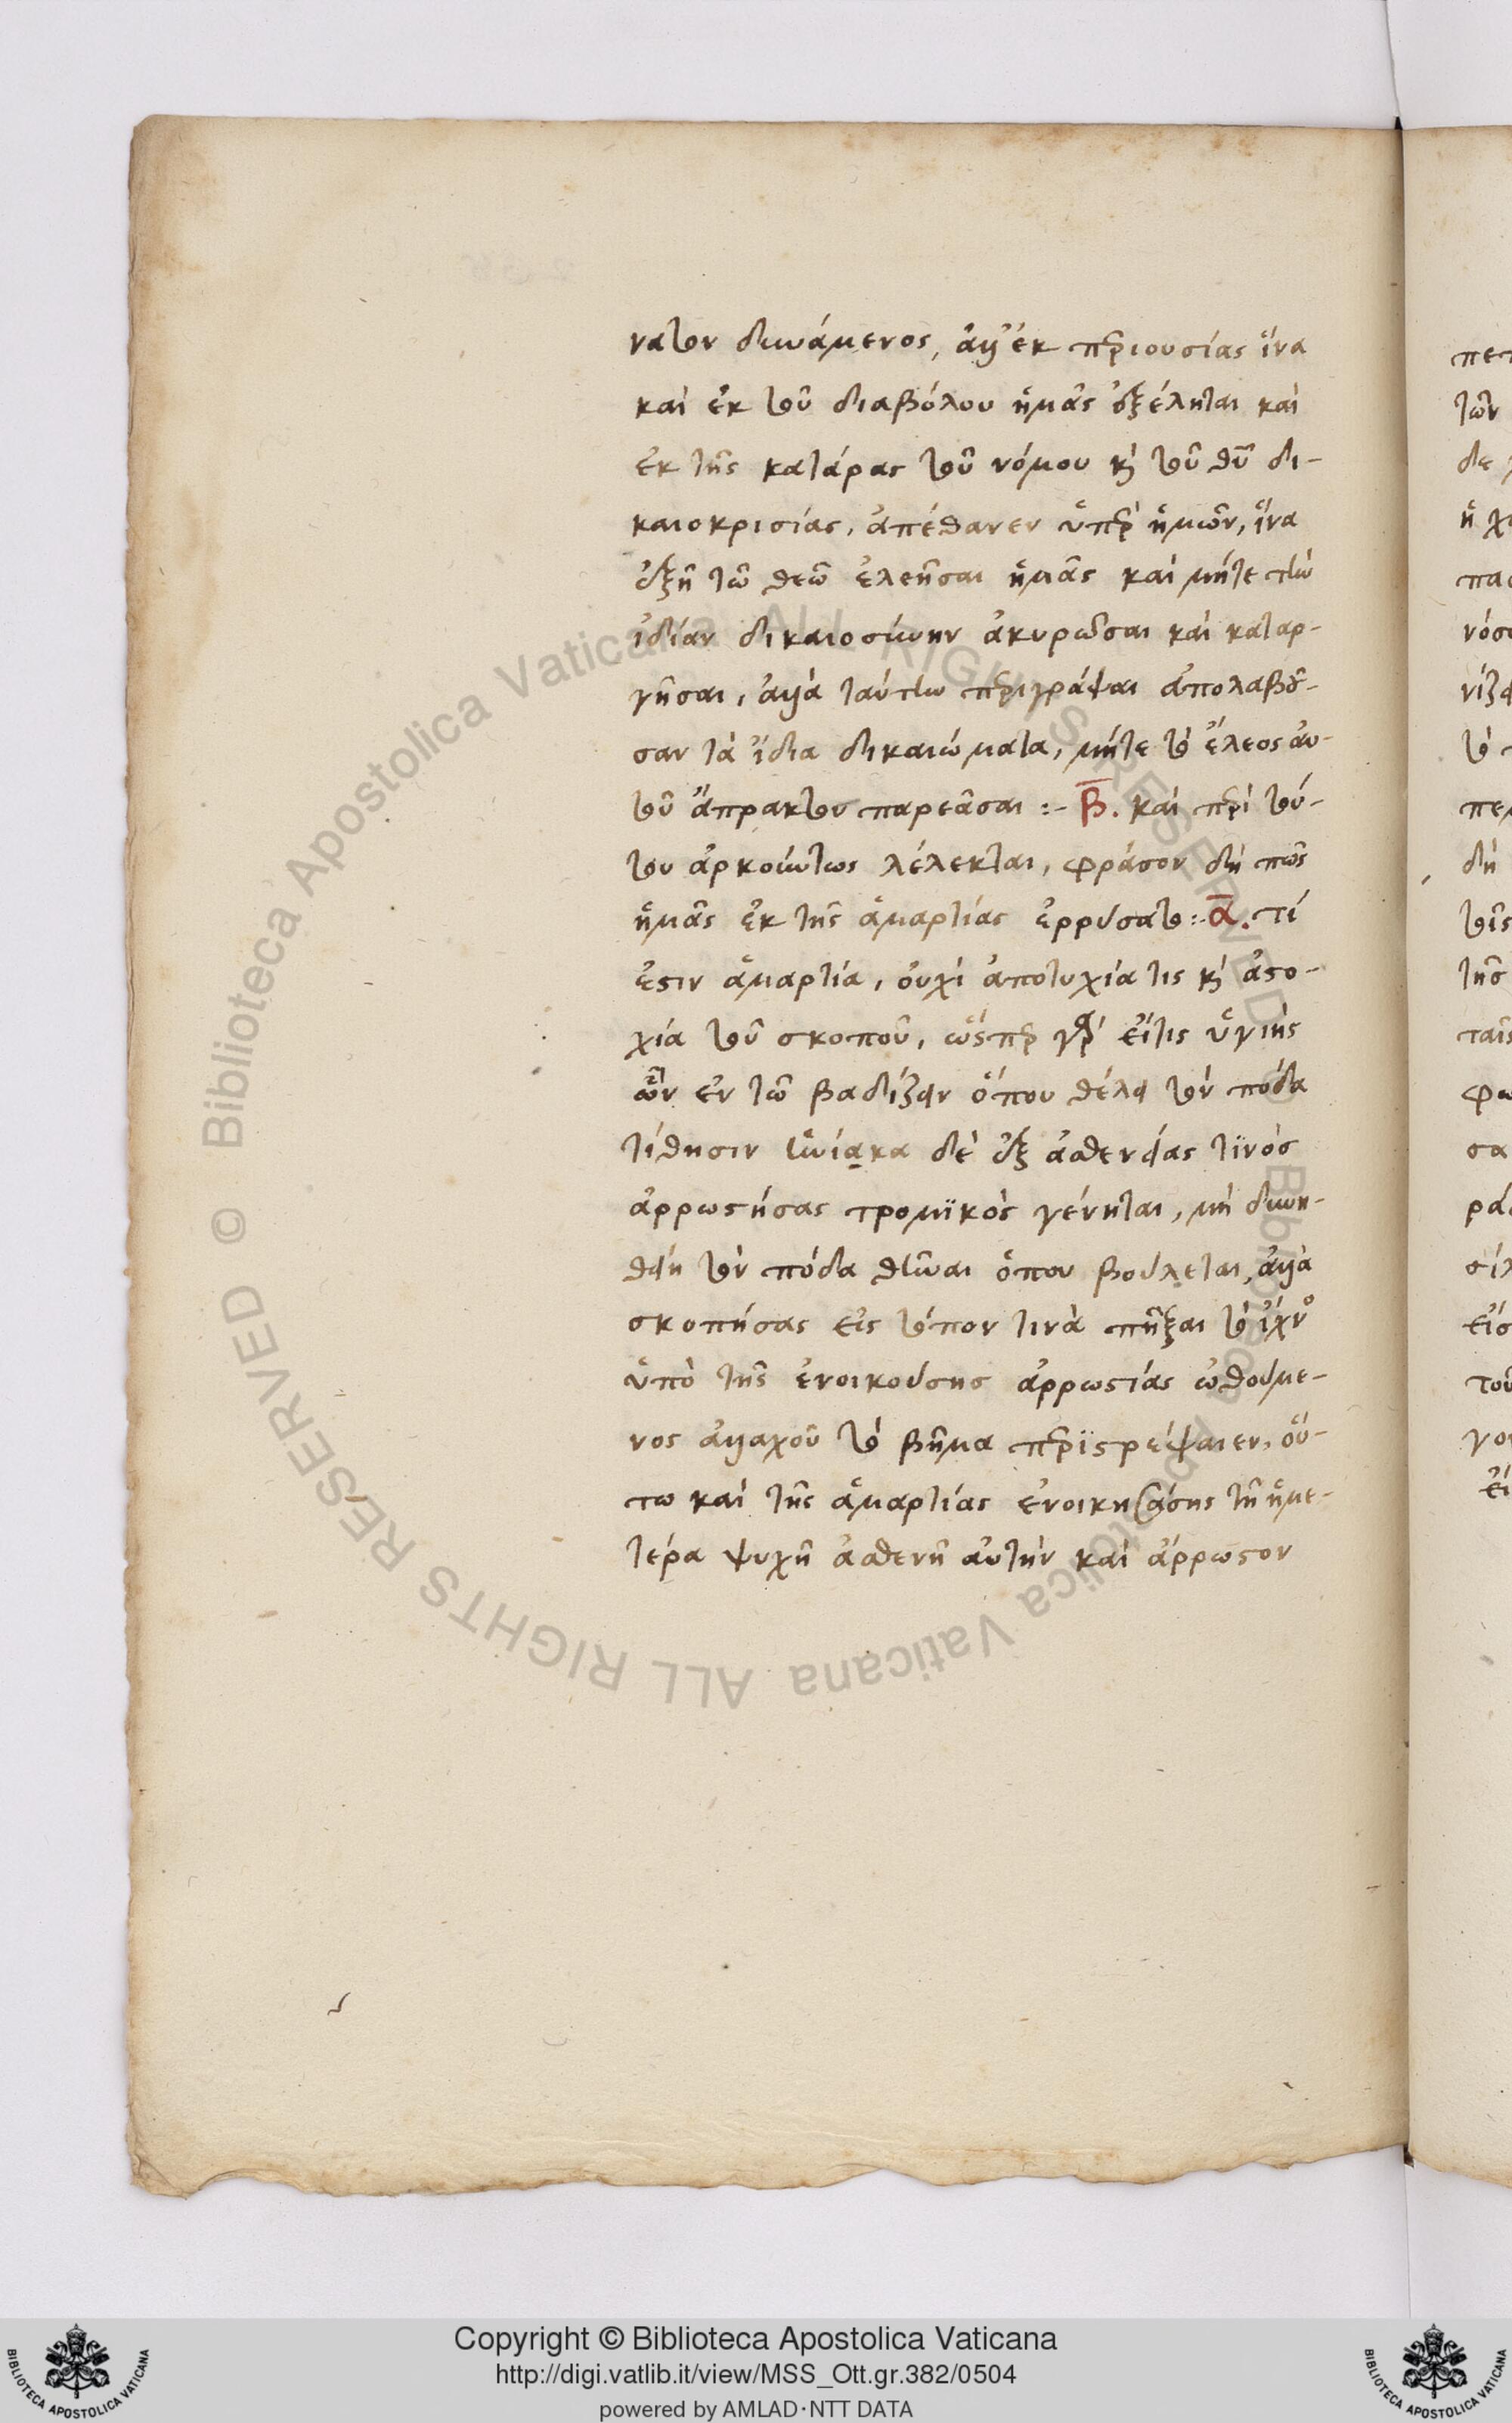 νατον δυνάμενος, ἀλλ' ἐκ περιουσίας ἵνα
καὶ ἐκ τοῦ διαβόλου ἡμᾶς ἐξέληται καὶ
ἐκ τῆς κατάρας τοῦ νόμου κὶ τοῦ θῦ δι-
καιοκρισίας, ἀπέθανεν ὑπὲρ ἡμῶν, ἵνα
ἐξῆ τῶ θεῶ ἐλεῆσαι ἡμᾶς καὶ μήτε τὴν
ἰδίαν δικαιοσύνην ἀκυρῶσαι καὶ καταρ-
γῆσαι, ἀλλὰ ταύτην περιγράψαι ἀπολαβοῦ-
σαν τὰ ἴδια δικαιώματα, μήτε τὸ ἔλεος αὐ-
τοῦ ἄπρακτον παρεᾶσαι :- Β. καὶ περὶ τού-
του ἀρκούντως λέλεκται, φράσον δὴ πῶς
ἡμᾶς ἐκ τῆς ἁμαρτίας ἐρρύσατο :- Α. τί
ἐστιν ἁμαρτία, οὐχὶ ἀποτυχία τις κὶ ἀστο-
χία τοῦ σκοποῦ, ὥσπερ γὰρ εἴτις ὑγιὴς
ὢν ἐν τῶ βαδίζειν ὅπου θέλει τὸν πόδα
τίθησιν τηνίακα δὲ ἐξ ἀσθενείας τϊνὸς
ἀρρωστήσας τρομϊκὸς γένηται, μὴ δυνη-
θείη τὸν πόδα θῆναι ὅπου βούλεται, ἀλλὰ
σκοπήσας εἰς τόπον τινὰ πῆξαι τὸ ἴχνος
ὑπὸ τῆς ἐνοικούσης ἀρρωστίας ὠθούμε-
νος ἀλλαχοῦ τὸ βῆμα περϊστρέψαιεν, οὕ-
τω καὶ τῆς ἁμαρτίας ἐνοικησάσης τῆ ἡμε-
τέρα ψυχῆ ἀσθενῆ αὐτὴν καὶ ἄρρωστον
Copyright © Biblioteca Apostolica Vaticana
http://digi.vatlib.it/view/MSS_Ott.gr.382/0504
powered by AMLAD·NTT DATA